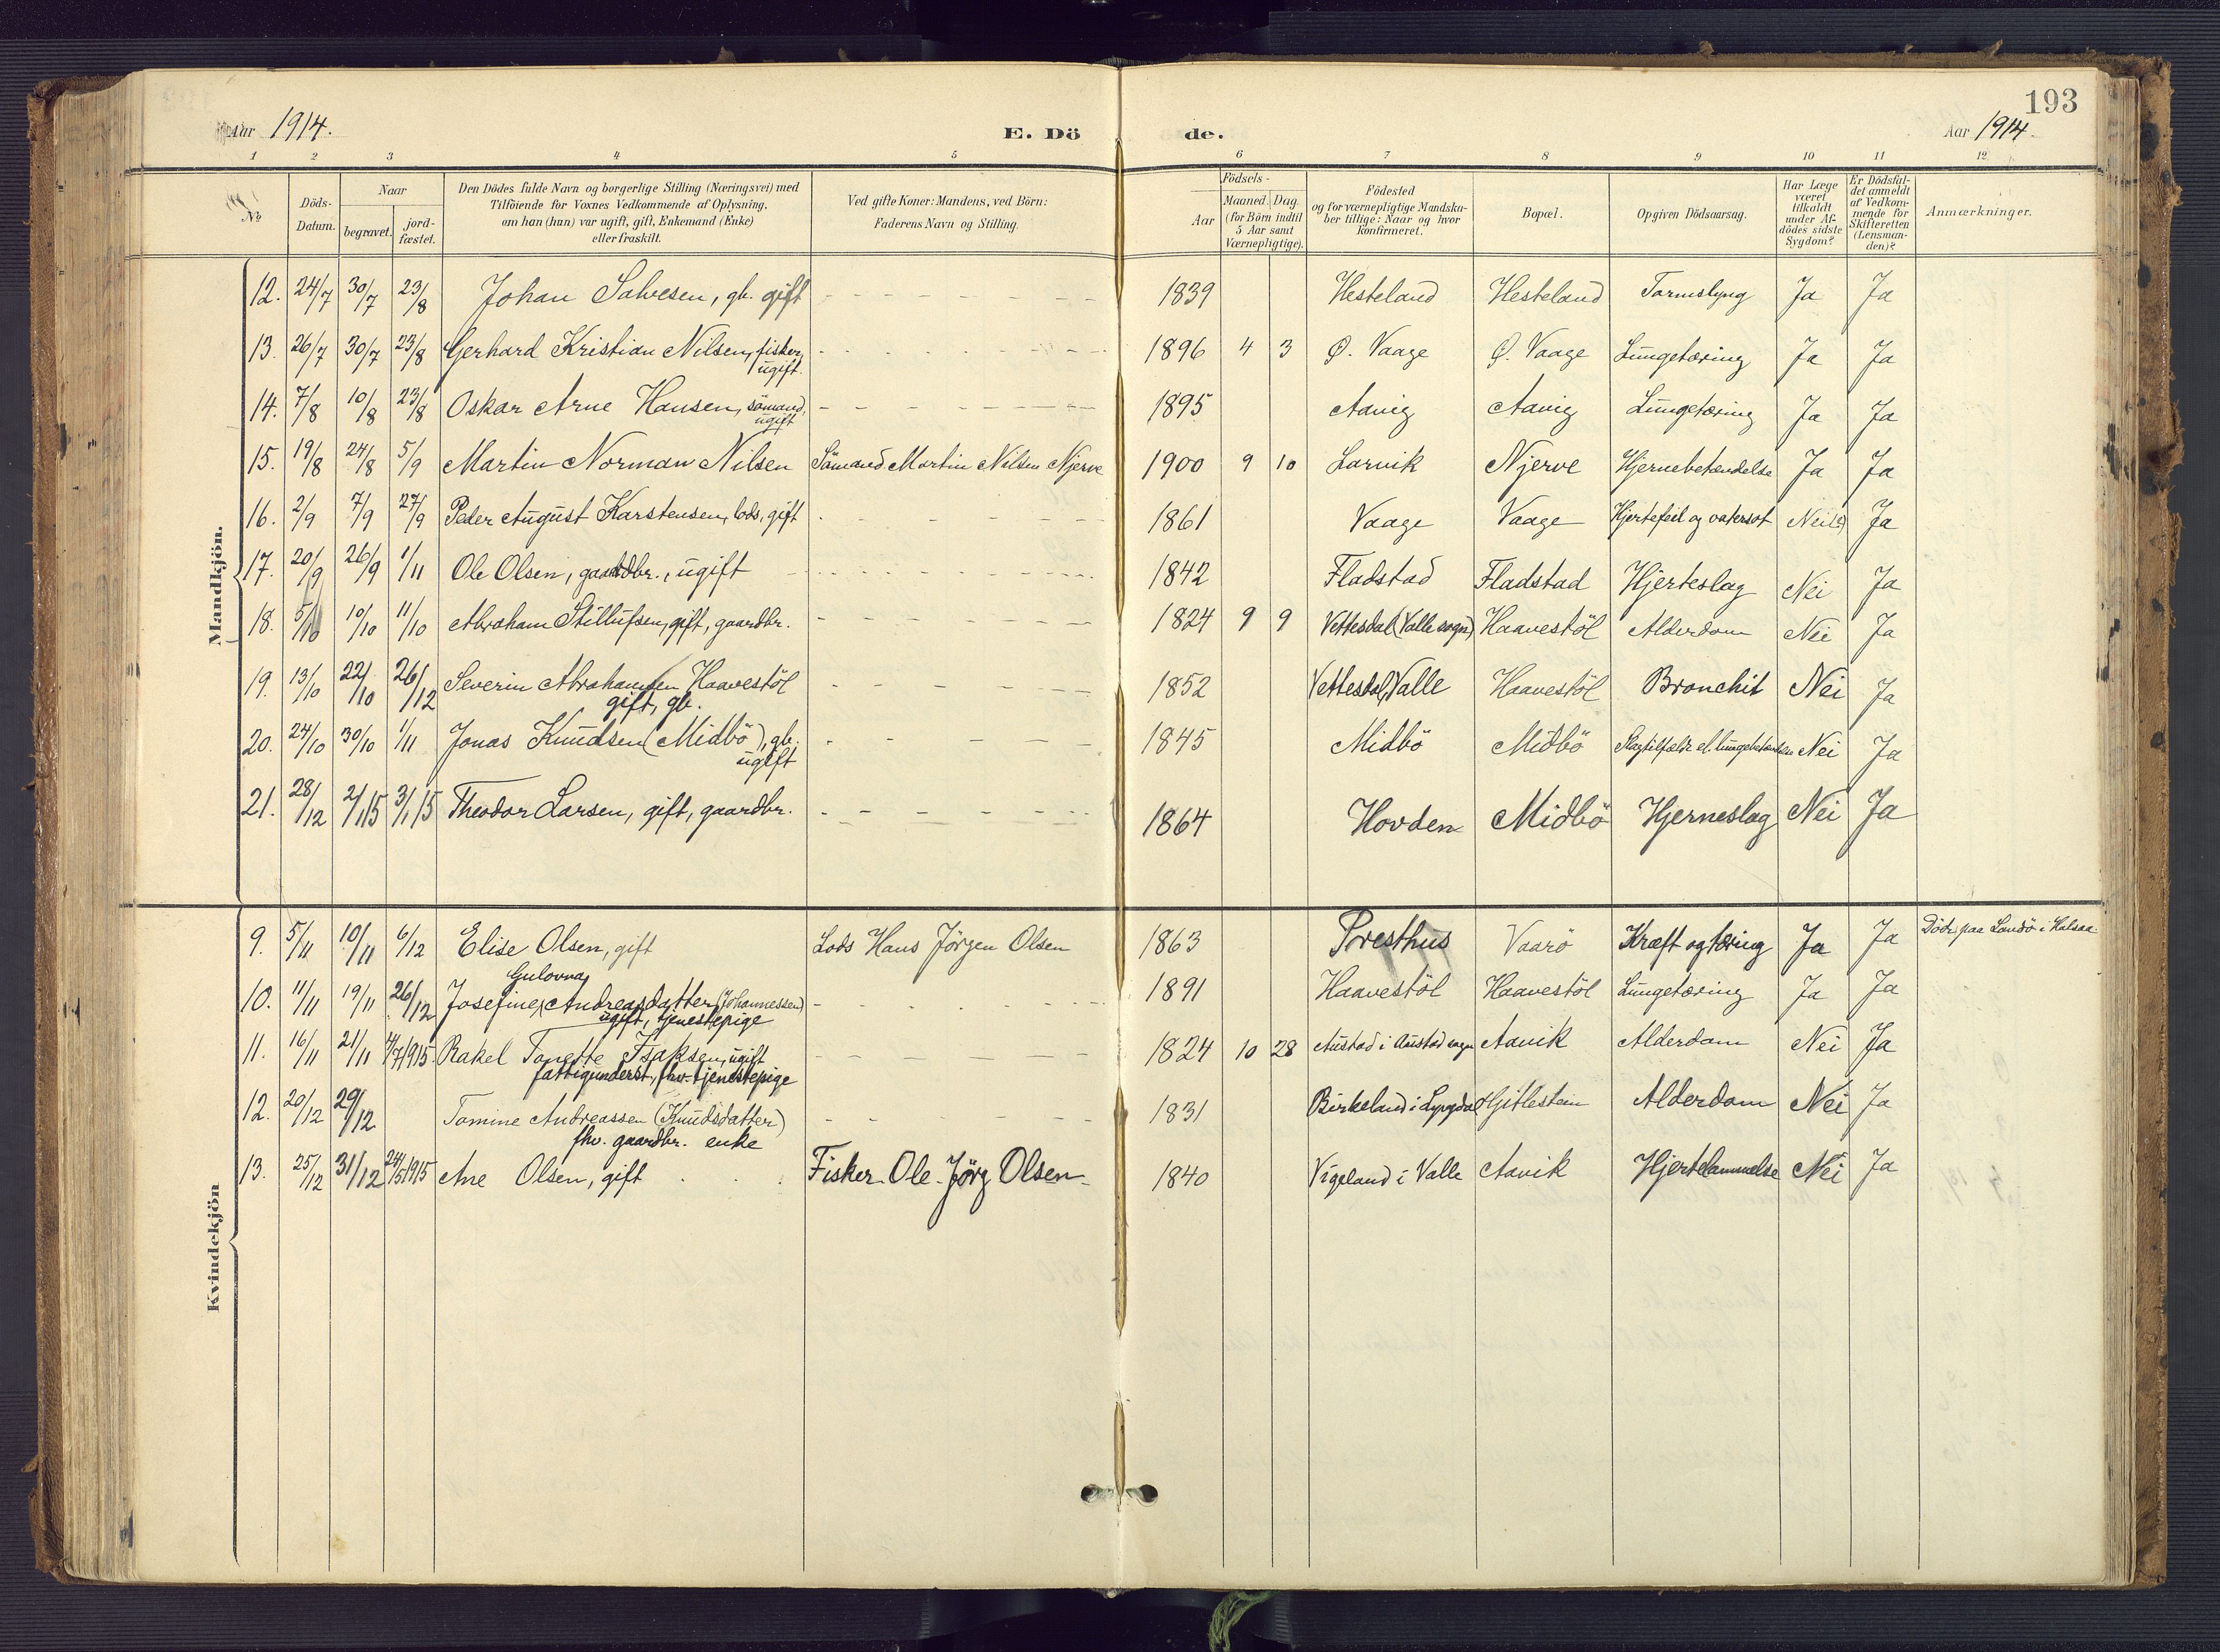 193
Aar 1914.
E. Dö de.
Aar 1914.
1 2 3 4 5 6 7 8 9 10 11 12
No
Döds-Datum.
Naar
begravet.
jord-fæstet.
Den Dödes fulde Navn og borgerlige Stilling (Næringsvei) med
Tilföiende for Voxnes Vedkommende af Oplysning,
om han (hun) var ugift, gift, Enkemand (Enke)
eller fraskilt.
Ved gifte Koner: Mandens, ved Börn:
Faderens Navn og Stilling.
Födsels-
Aar
Maaned. Dag.
(for Börn indtil
5 Aar samt
Værnepligtige).
Födested
og for værnepligtige Mandska-
ber tillige: Naar og hvor
konfirmeret.
Bopæl.
Opgiven Dödsaarsag.
Har Læge
været
tilkaldt
under Af-
dödes sidste
Sygdom?
Er Dödsfal-
det anmeldt
af Vedkom-
mende for
Skifteretten
(Lensman-
den)?
Anmærkninger.
Mandkjön.
12. 24/7 30/7 23/8 Johan Salvesen, gb. gift 1839 Hesteland Hesteland Tarmslyng Ja Ja
13. 26/7 30/7 23/8 Gerhard Kristian Nilsen, fisker, 1896 4 3 Ø. Vaage Ø. Vaage Lungetæring Ja Ja
ugift.
14. 7/8 10/8 23/8 Oskar Arne Hansen, sömand, 1895 Aavig Aavig Lungetæring Ja Ja
ugift
15. 19/8 24/8 5/9 Martin Norman Nilsen Sömand Martin Nilsen Njerve 1900 9 10 Larvik Njerve Hjernebetændelse Ja Ja
16. 2/9 7/9 27/9 Peder August Karstensen, lods, gift 1861 Vaage Vaage Hjertefeil og vatersot Nei Ja
17. 20/9 26/9 1/11 Ole Olsen, gaardbr., ugift 1842 Fladstad Fladstad Hjerteslag Nei Ja
18. 5/10 10/10 11/10 Abraham Stillufsen, gift, gaardbr. 1824 9 9 Vettesdal (Valle sogn) Haavestöl Alderdom Nei Ja
19. 13/10 22/10 26/12 Severin Abrahamsen Haavestöl 1852 Vettesdal, Valle Haavestöl Bronchit Nei Ja
gift, gb.
20. 24/10 30/10 1/11 Jonas Knudsen (Midbö), gb. 1845 Midbö Midbö Slagtilfælde el. lungebetændelse Nei Ja
ugift
21. 28/12 2/1 15 3/1 15 Theodor Larsen, gift, gaardbr. 1864 Hovden Midbö Hjerneslag Nei Ja
Kvindekjön
9. 5/11 10/11 6/12 Elise Olsen, gift Lods Hans Jörgen Olsen 1863 Presthus Vaarö Kræft og tæring Ja Ja Döde paa Landö i Halsaa
Gulovna
10. 11/11 19/11 26/12 Josefine Andreasdatter (Johannessen) 1891 Haavestöl Haavestöl Lungetæring Ja Ja
ugift, tjenestepige
11. 16/11 21/11 4/7 1915. Rakel Tonette Isaksen, ugift 1824 10 28 Austad i Austad sogn Aavik Alderdom Nei Ja
fattigunderst., fhv. tjenestepige
12. 20/12 29/12 Tomine Andreassen (Knudsdatter) 1831 Birkeland i Lyngdal Gitlestein Alderdom Nei Ja
fhv. gaardbr. enke
13. 25/12 31/12 24/5 1915 Ane Olsen, gift Fisker Ole Jörg Olsen 1840 Vigeland i Valle Aavik Hjertelammelse Nei Ja